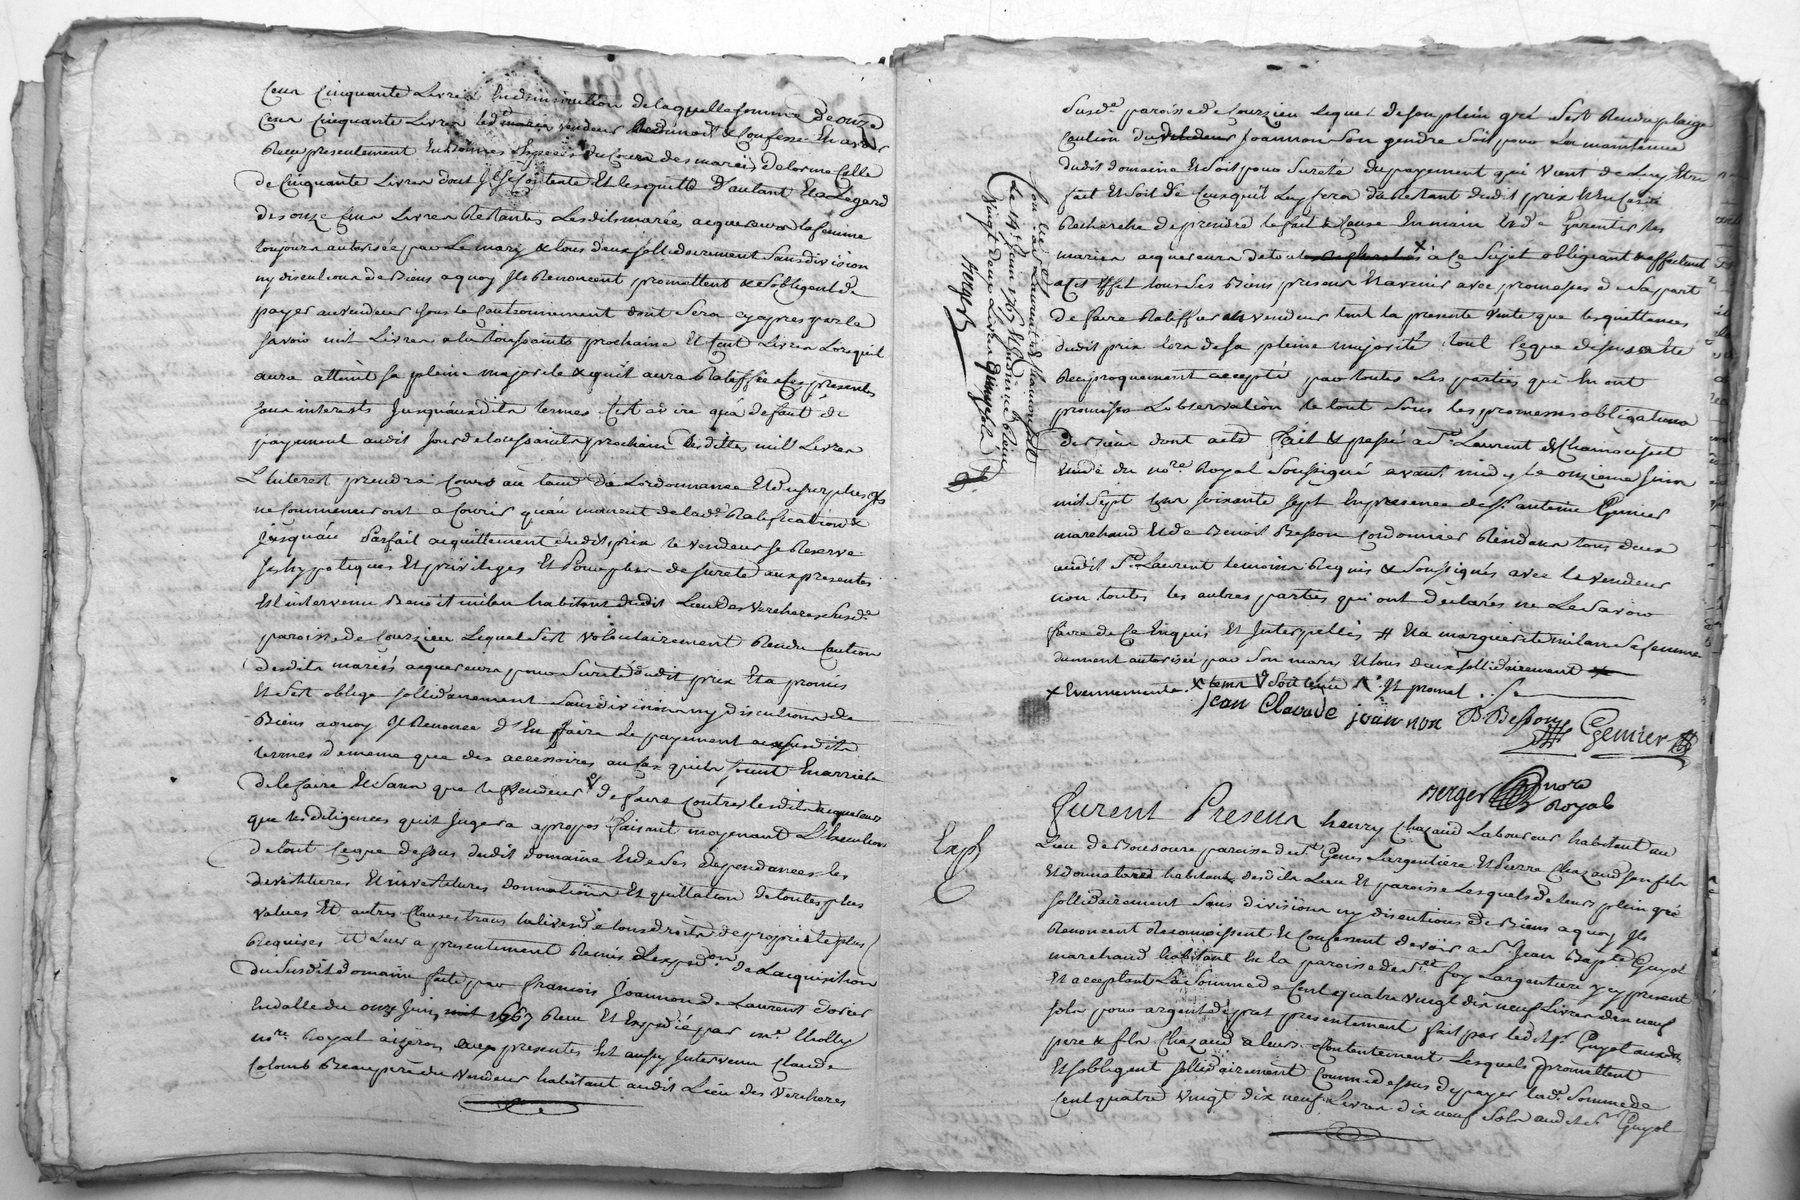 Cent Cinquante Livres En diminution de laquelle somme de onze
Cent Cinquante Livres led. vendeur Reconnoit & Confesse En avoir
Reçu presentement En bonnes Especes du Cours des mariés de lorme Celle
de Cinquante Livres dont Il Se Contente Et les quitte D'autant Et a Legard
des onze Cens Livres Restantes Lesdits mariés acquereurs la femme
toujours autorisée par Le mary & tous deux sollidairement Sans division
ny discutions de Biens a quoy Ils Renoncent promettent & s'obligent de
payer au vendeur sous le Cautionnement dont Sera cy apres parlé
savoir mil Livres a la toussaints prochaine Et Cent Livres Lorsquil
aura atteint sa pleine majorité & quil aura Ratiffié Les presentes
sans interests Jusquauxdits termes C'est a dire qua defaut de
payement audit Jour de toussaints prochain lesdittes mil Livres
L'Interest prendra Cours au taux de L'ordonnance Et du surplus Ils
ne Commenceront a Courir quau moment de lad. Ratification &
Jusquau Parfait acquittement dudit prix le vendeur se Reserve
Ses hypoteques Et privileges Et Pour plus de sureté aux presentes
Est intervenu Benoit milan habitant dudit Lieu des Vercheres Susd.e
paroisse de Courzieu Lequel S'est volontairement Rendu Caution
desdits mariés acquereurs pour Sureté dudit prix Et a promis
Et S'est obligé sollidairement Sans division ny discutions de
Biens a quoy Il Renonce D'En ffaire Le payement aux susdits
termes de meme que des accessoires au Cas quils soient En arriere
de le faire Et Sans que le vendeur de faire Contre lesdits acquereurs
que les diligences quil Jugera a propos faisant moyenant L'Execution
de tout Ceque dessus dudit domaine Et de Ses dependances les
devestitures Et investitures donnations Et quittation de toutes plus
values Et autres Clauses translatives de tous droits de proprieté plus
Requises Et Leur a presentement Remis L'Expd.on de L'acquisition
du Susdit domaine faite par francois Joannon de Laurent dorier
En datte du onze Juin 1767 Reçu Et Expedié par m.e
no.re Royal aux presentes Est aussy Intervenu Claude
Colomb Beaupere du vendeur habitant audit Lieu des Vercheres
Susd.e paroisse de Courzieu Lequel de son plein gré S'est Rendu pleige
Caution dud. Joannon Son gendre Soit pour La maintenue
dudit domaine Et Soit pour Sureté du payement qui vient de Luy Etre
fait Et Soit de Ceux quil Luy sera du Restant dudit prix Et En Cas de
Recherche de prendre le fait & Cause En main Et de Garentir les
mariés acquereurs de tout a Ce Sujet obligeant & affectant
a Cet Effet tous Ses Biens presens Et avenir avec promesses de Sa part
de faire Ratiffier au vendeur tant la presente vente que les quittances
dudit prix Lors de sa pleine majorité tout Ceque dessus a été
Reciproquement accepté par toutes Les parties qui En ont
promis Lobservation le tout Sous les promesses obligations
de Biens dont acte fait & passé a S.t Laurent de Chamousset
Etude du no.re Royal Soussigné avant midy Le onzieme Juin
mil Sept Cens Soixante Sept En presence de S.r antoine Genier
marchand Et de Benoit Besson Cordonnier Residans tous deux
audit S.t Laurent temoins Requis & Soussignés avec le vendeur
non toutes les autres parties qui ont declarés ne Le Savoir
faire de Ce Enquis Et Interpellés # Et a marguerite milan Sa femme
duement autorisée par Son mary Et tous deux sollidairement
x Evennements Et promet
Jean Clavade joannon B. Besson Genier
Berger
nore
Royal
Con.lé a S.t Laurent de Chamousset
Le 19.e Juin 1767
vingt deux Livres
Berger
Exp
Furent Presens henry Chazaud Laboureur habitant au
Lieu de paroisse de S.t Genis Largentiere Et Pierre Chazaud son fils
Et donnataire habitant desdits Lieu Et paroisse Lesquels de leur plein gré
sollidairement Sans division ny discutions de Biens a quoy Ils
Renoncent Reconnoissent Et Confessent devoir a S.r Jean Bap.te Guyot
marchand habitant En la paroisse de S.te foy Largentiere y cy present
Et acceptant La Somme de Cent quatre vingt dix neuf Livres dix neuf
sols pour argent de pret presentement fait par ledit S.r Guyot auxd.
pere & fils Chazaud a leur Contentement Lesquels promettent
Et sobligent sollidairement Comme dessus de payer lad. Somme de
Cent quatre vingt dix neuf Livres dix neuf Sols audit S.r Guyot